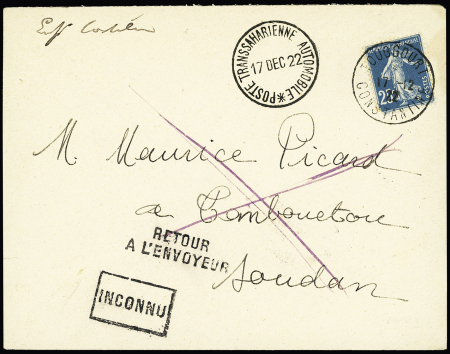 POSTE TRANSSAHARIENNE AUTOMOBILE *
17 DEC 22
TOUGGOURT
17 12
22
CONSTANTINE
25
M. Maurice Picard
a Tombouctou
Soudan
RETOUR
A L'ENVOYEUR
INCONNU